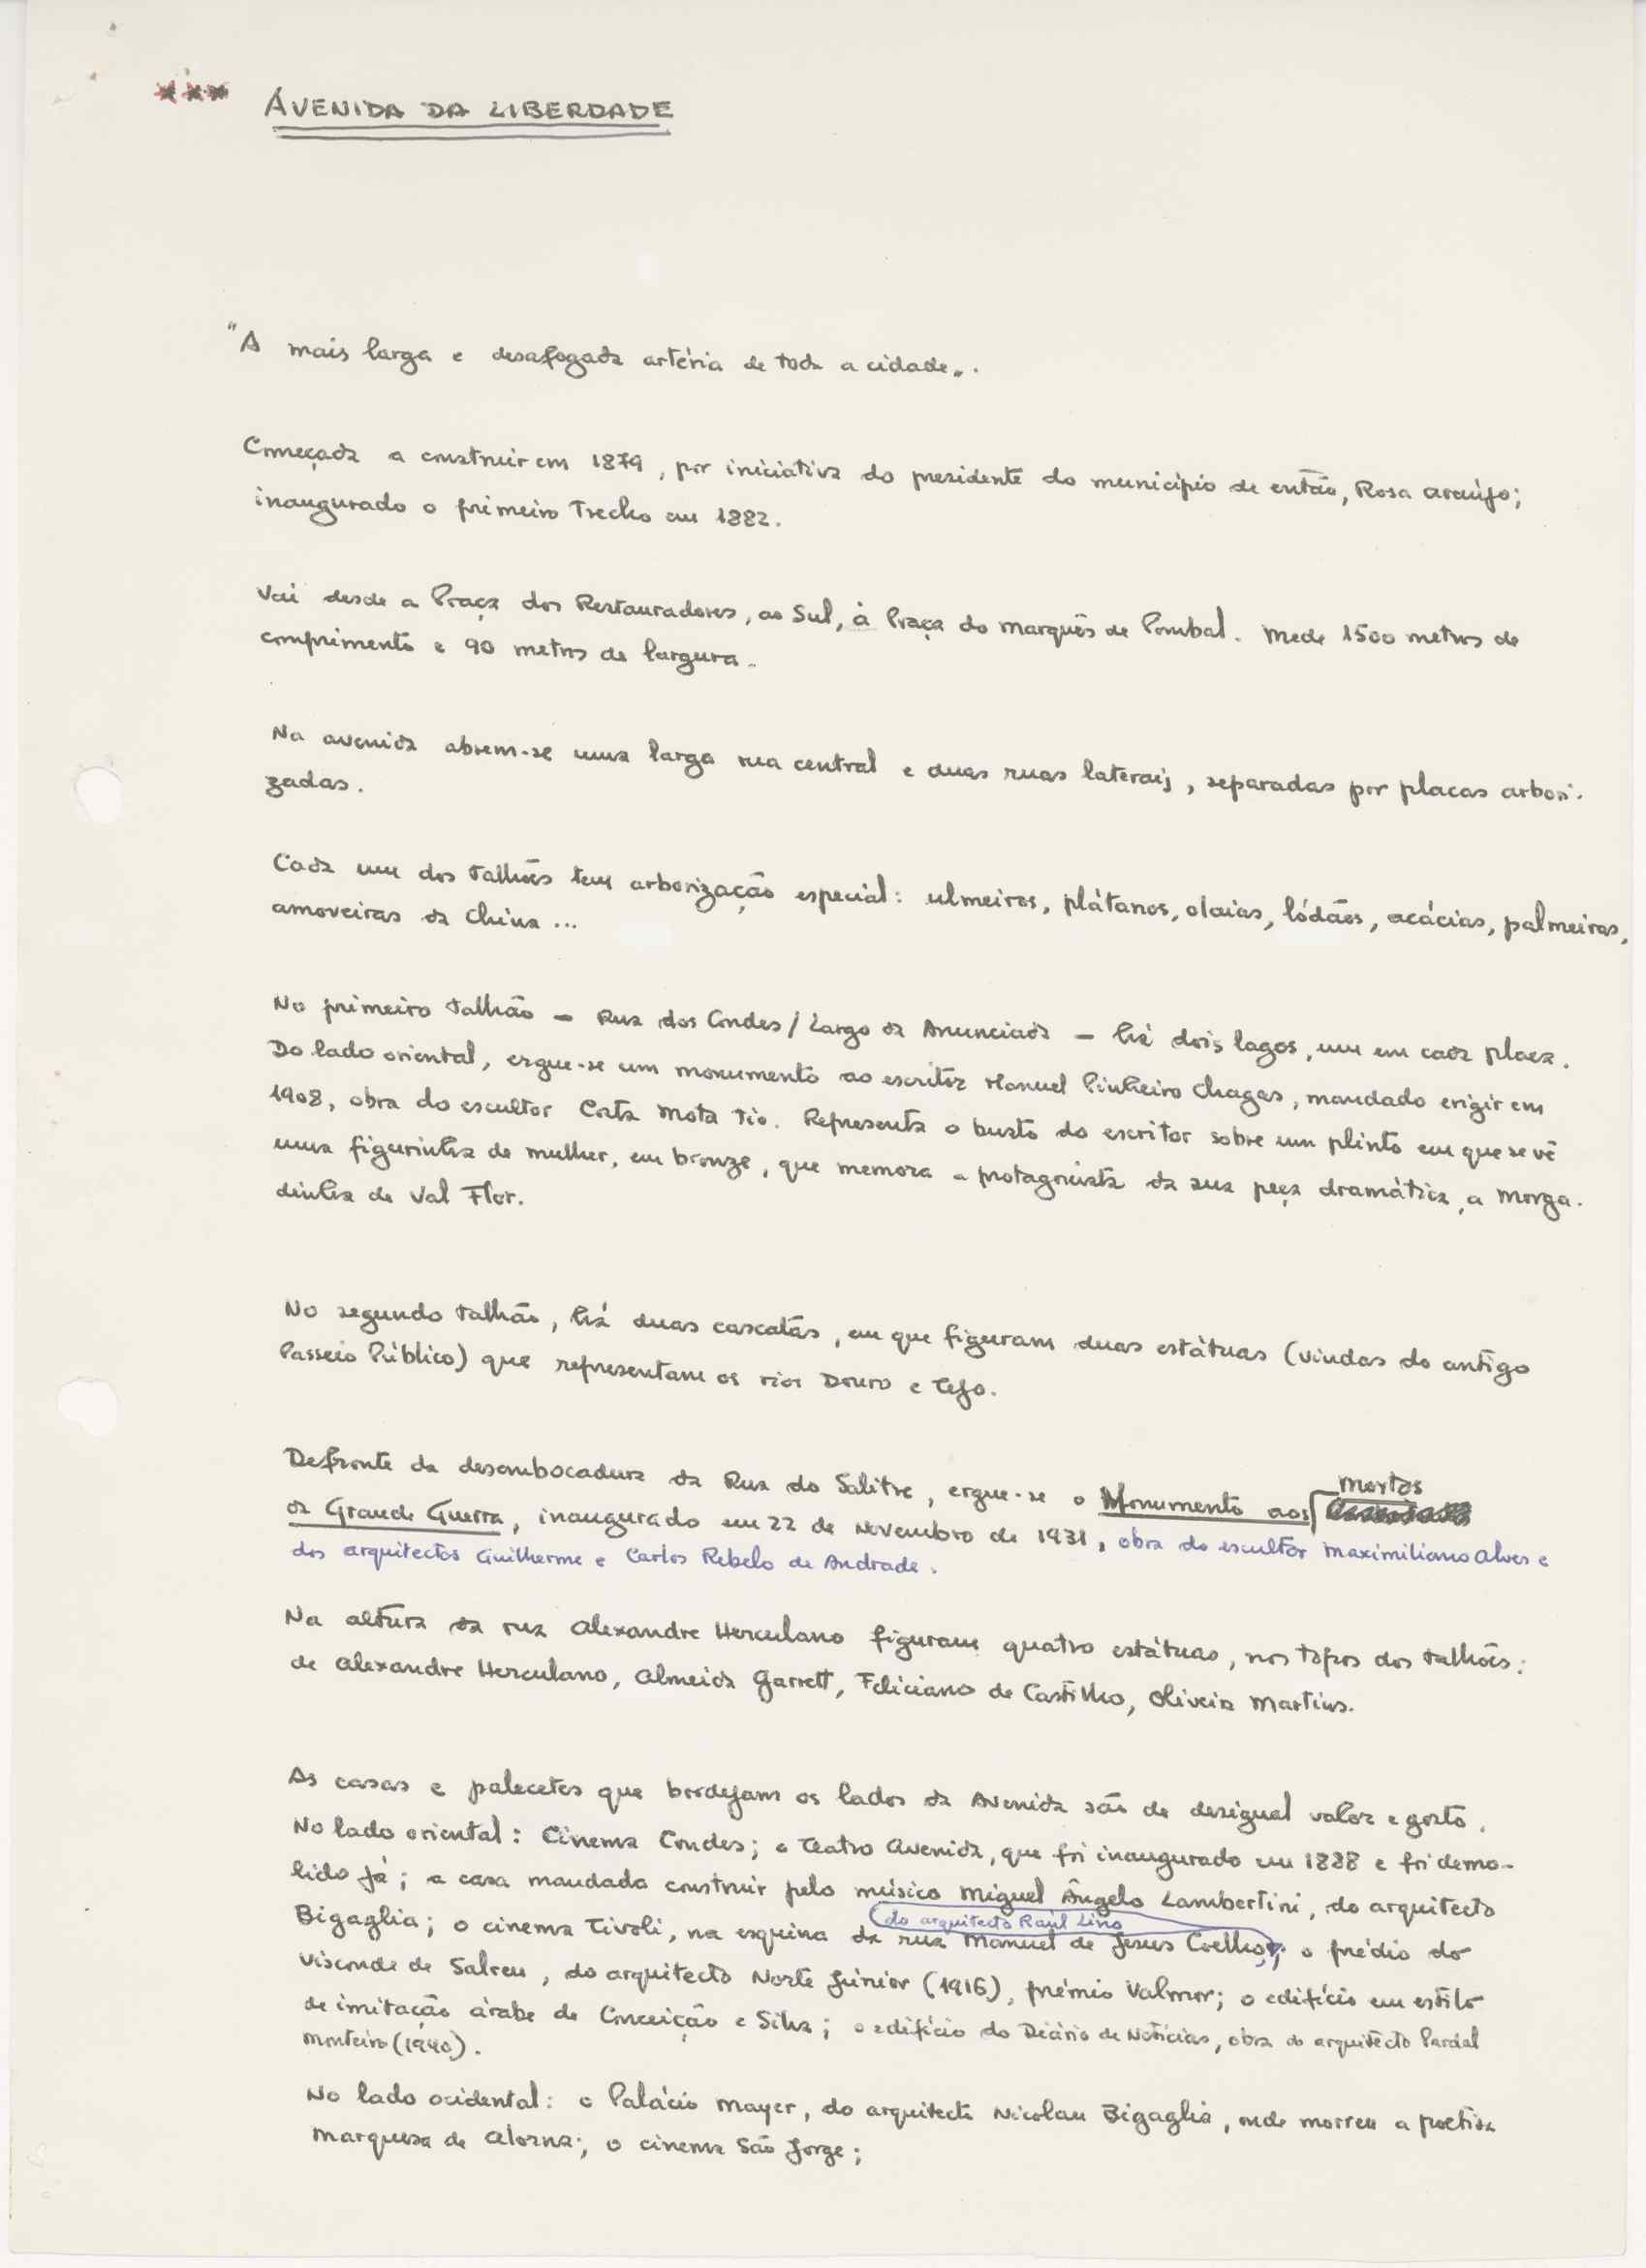 *** AVENIDA DA LIBERDADE
"A mais larga e desafogada artéria de toda a cidade".
Começada a construir em 1879, por iniciativa do presidente do município de então, Rosa Araújo;
inaugurado o primeiro trecho em 1882.
Vai desde a Praça dos Restauradores, ao Sul, à Praça do Marquês de Pombal. Mede 1500 metros de
comprimento e 90 metros de largura.
Na avenida abrem-se uma larga rua central e duas ruas laterais, separadas por placas arbori-
zadas.
Cada um dos talhões tem arborização especial: ulmeiros, plátanos, olaias, lódãos, acácias, palmeiras,
amoreiras da China ...
No primeiro talhão - Rua dos Condes / Largo da Anunciada - há dois lagos, um em cada placa.
Do lado oriental, ergue-se um monumento ao escritor Manuel Pinheiro Chagas, mandado erigir em
1908, obra do escultor Costa Mota Tio. Representa o busto do escritor sobre um plinto em que se vê
uma figurinha de mulher, em bronze, que memora a protagonista da sua peça dramática, a Morga-
dinha de Val Flor.
No segundo talhão, há duas cascatas, em que figuram duas estátuas (vindas do antigo
Passeio Público) que representam os rios Douro e Tejo.
Defronte da desembocadura da Rua do Salitre, ergue-se o Monumento aos Mortos
da Grande Guerra, inaugurado em 22 de Novembro de 1931, obra do escultor Maximiliano Alves e
dos arquitectos Guilherme e Carlos Rebelo de Andrade.
Na altura da rua Alexandre Herculano figuram quatro estátuas, nos topos dos talhões:
de Alexandre Herculano, Almeida Garrett, Feliciano de Castilho, Oliveira Martins.
As casas e palecetes que bordejam os lados da Avenida são de desigual valor e gosto.
No lado oriental: Cinema Condes; o Teatro Avenida, que foi inaugurado em 1888 e foi demo-
lido já; a casa mandada construir pelo músico Miguel Ângelo Lambertini, do arquitecto
Bigaglia; o cinema Tivoli, na esquina da rua Manuel de Jesus Coelho, do arquitecto Raúl Lino; o prédio do
Visconde de Salreu, do arquitecto Norte Júnior (1916), prémio Valmor; o edifício em estilo
de imitação árabe de Conceição e Silva; o edifício do Diário de Notícias, obra do arquitecto Pardal
Monteiro (1940).
No lado ocidental: o Palácio Mayer, do arquitecto Nicolau Bigaglia, onde morreu a poetisa
Marquesa de Alorna; o cinema São Jorge;